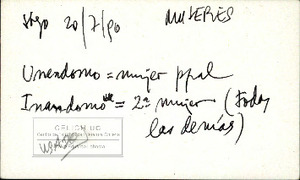 Stgo 20/7/90 MUJERES
Unendomo = mujer ppal
Inandomo = 2ª mujer (todas
las demás)
CELICH UC
USADO